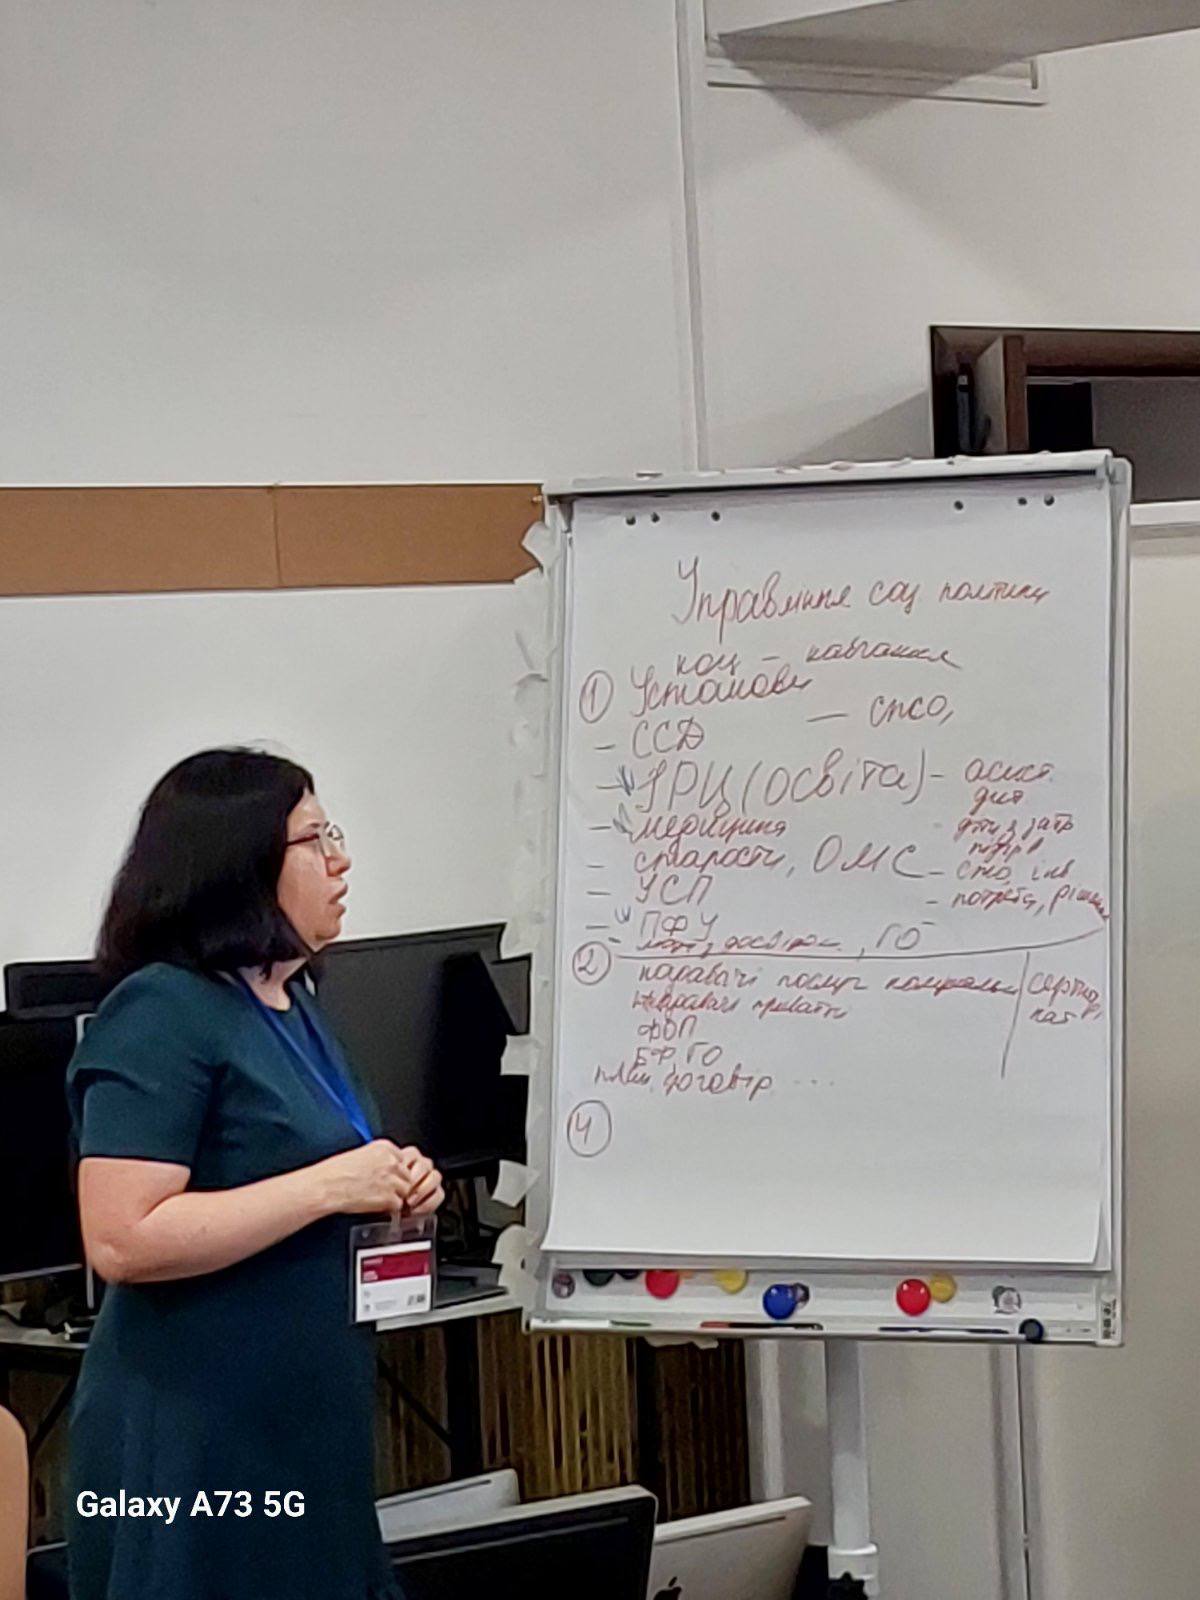 Управління соц політики
коц - навчання
① Установи
- ССД - СПСО,
- ІРЦ (освіта) - асист. дит
- медицина - діти з затр
- старости, ОМС - спо, інв
- УСП - потреби, рішення
- ПФУ
, ГО
② надавачі послуг комунальні
надавачі приватні
ФОП
БФ, ГО
договір ...
④
Galaxy A73 5G